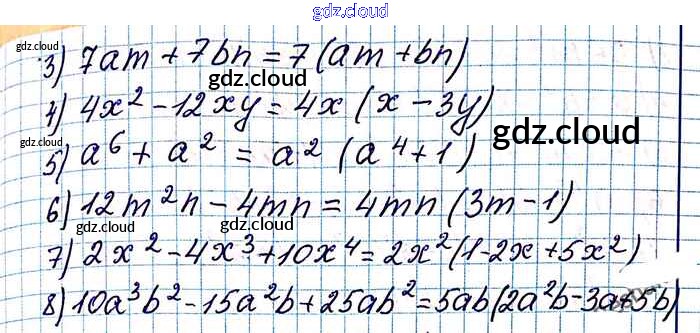 gdz.cloud
3) 7am + 7bn = 7(am + bn)
gdz.cloud
gdz.cloud
4) 4x² - 12xy = 4x(x - 3y)
gdz.cloud
gdz.cloud
5) a⁶ + a² = a² (a⁴ + 1)
6) 12m²n - 4mn = 4mn(3m - 1)
gdz.cloud
gdz.cloud
7) 2x² - 4x³ + 10x⁴ = 2x²(1 - 2x + 5x²)
8) 10a³b² - 15a²b + 25ab² = 5ab(2a²b - 3a + 5b)